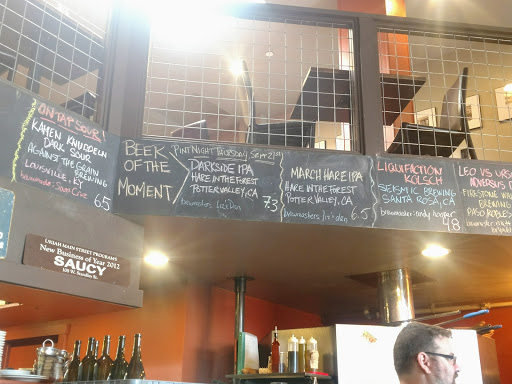 ON TAP SOUR!
KAHEN KNUDDELN
DARK SOUR
AGAINST THE GRAIN
BREWING
LOUISVILLE, KY
brewmaster: Sam Cruz
6.5
BEEK
OF THE
MOMENT
PINT NIGHT THURSDAY SEPT 21ST
DARKSIDE IPA
HARE IN THE FOREST
POTTER VALLEY, CA
7.3
MARCH HARE IPA
HARE IN THE FOREST
POTTER VALLEY, CA
6.5
LIQUIFACTION
KÖLSCH
SEISMIC BREWING
SANTA ROSA, CA
brewmaster: andy hooper
4.8
LEO VS URSUS
ADVERSUS
FIRESTONE
BREWING
PASO ROBLES
UKIAH MAIN STREET PROGRAM'S
New Business of Year 2012
SAUCY
108 W. Standley St.